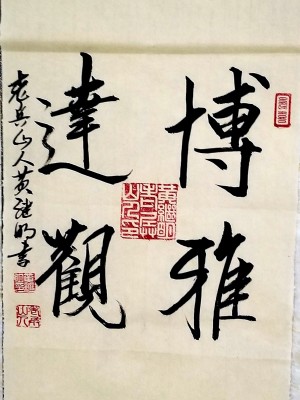 博雅
達觀
老兵山人黄继明書